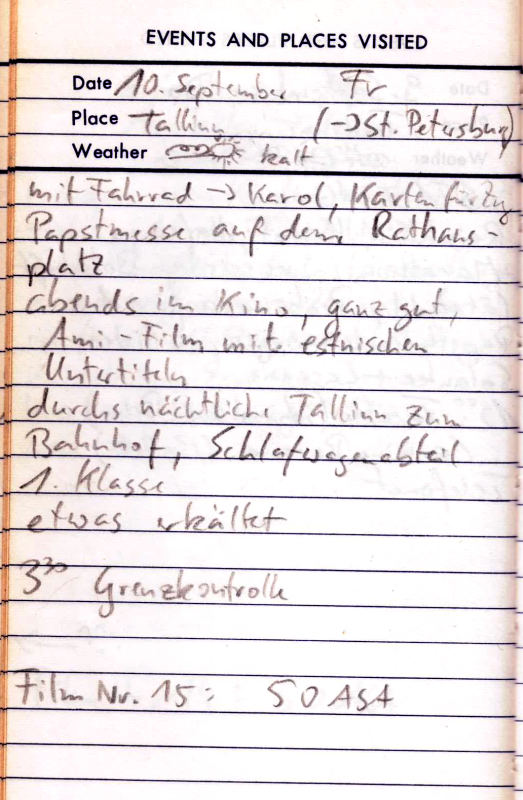 EVENTS AND PLACES VISITED
Date 10. September Fr
Place Tallinn (→St. Petersburg)
Weather kalt
mit Fahrrad → Karol, Karten für Zug
Papstmesse auf dem Rathaus-
platz
abends im Kino, ganz gut,
Ami-Film mit estnischen
Untertiteln
durchs nächtliche Tallinn zum
Bahnhof, Schlafwagenabteil
1. Klasse
etwas erkältet
3³⁰ Grenzkontrolle
Film Nr. 15: 50 ASA